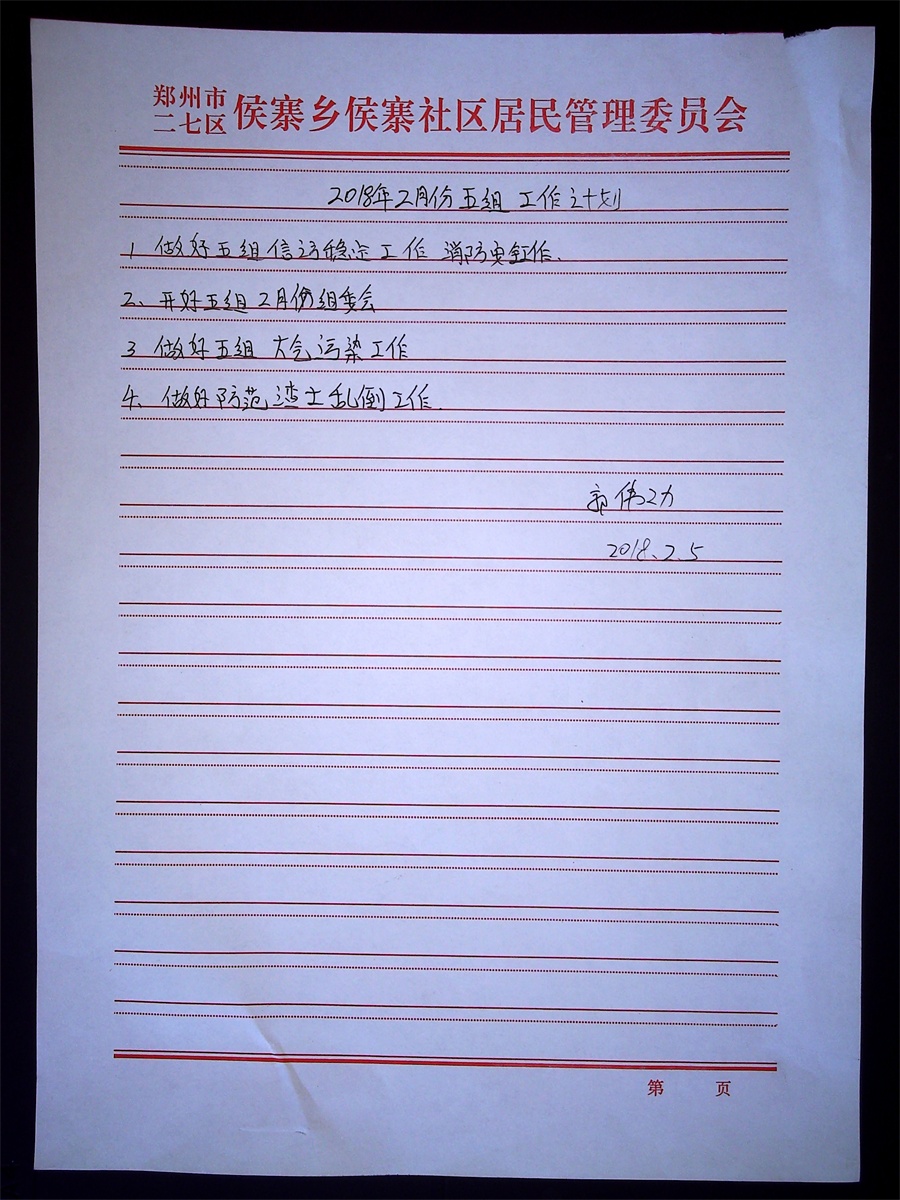 郑州市
二七区 侯寨乡侯寨社区居民管理委员会
2018年2月份五组 工作计划
1 做好五组信访稳定工作 消防安全工作.
2、开好五组2月份组委会
3 做好五组 大气污染工作
4、做好防范渣土乱倒工作.
伟功
2018.2.5
第 页